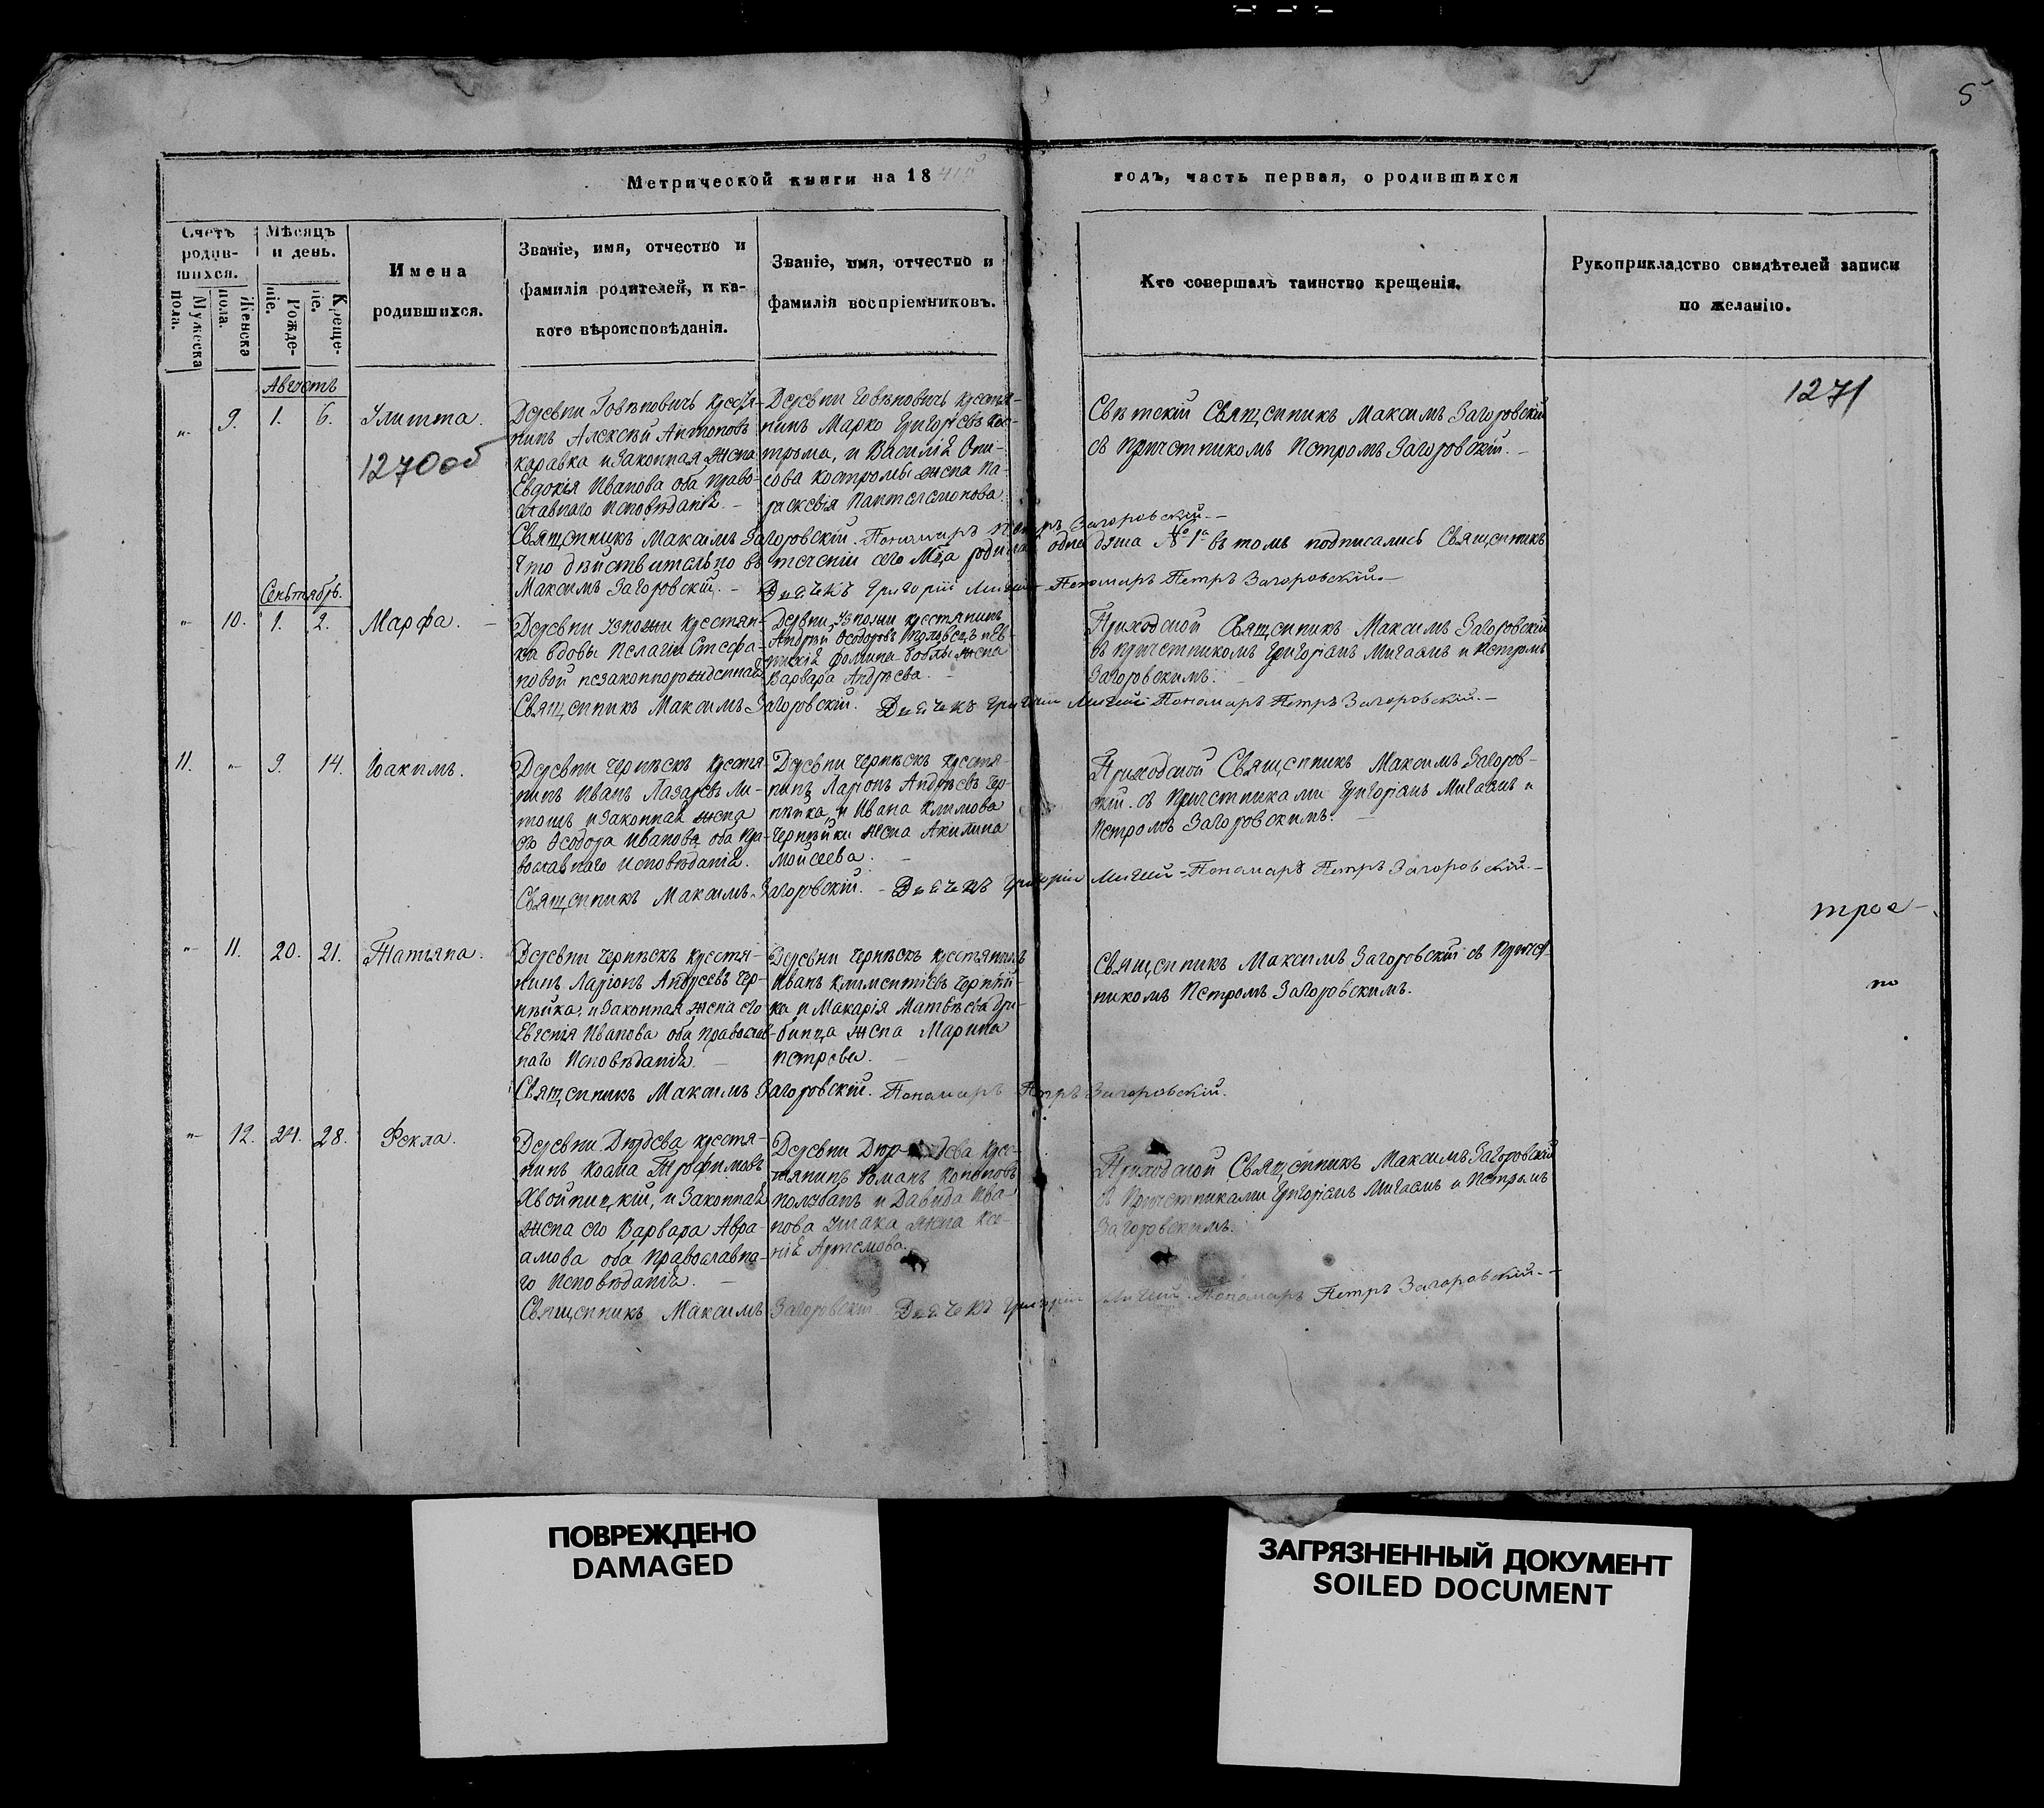 5
Метрической книги на 18
годъ, часть первая, о родившихся
Счетъ родив-шихся.
Мужеска пола.
Женска пола.
Мѣсяцъ и день.
Рожде-ніе.
Креще-ніе.
Имена
родившихся.
Званіе, имя, отчество и
фамилія родителей, и ка-
кого вѣроисповѣданія.
Званіе, имя, отчество и
фамилія воспріемниковъ.
Кто совершалъ таинство крещенія.
Рукоприкладство свидѣтелей записи
по желанію.
1271
Августъ
„ 9. 1. 6. Улитта.
1270 об
Деревни крестья-
нинъ Алексѣй Антоновъ
каравка и законная жена
Евдокія Иванова оба право-
славнаго исповѣданія. –
Деревни крестья-
нинъ Марко Григорьевъ Кос-
трома, и Василія
костромы жена Па-
раскевія Пантелемонова
Свѧтскій Священникъ Максимъ Загоровскій
съ причетникомъ Петромъ Загоровскій. –
Священникъ Максимъ Загоровскій. Пономарь Петръ Загоровскій. –
Что дѣйствительно въ теченіи сего М-ца одна душа № 1 въ томъ подписались Священникъ
Максимъ Загоровскій. – Дьячекъ Григорій Мигай Пономарь Петръ Загоровскій. –
Сентябрь.
„ 10. 1. 2. Марфа. –
Деревни крестьян-
ка вдовы Пелагіи Стефа-
новой незаконнорожденная
Деревни крестьянинъ
Андрей Феодоровъ и Ев-
Фомина жена
Варвара Андреева. –
Приходской Священникъ Максимъ Загоровскій
съ причетникомъ Григоріемъ Мигаемъ и Петромъ
Загоровскимъ. –
Священникъ Максимъ Загоровскій. Дьячекъ Григорій Мигай Пономарь Петръ Загоровскій. –
11. „ 9. 14. Іоакимъ.
Деревни Чернѣскъ крестья-
нинъ Иванъ Лазаревъ Ли-
тошъ и законная жена
его Феодора Иванова оба пра-
вославнаго исповѣданія.
Деревни Чернѣскъ крестья-
нинъ Ларіонъ Андреевъ Чер-
нѣйка, и Ивана Климова
Чернѣйки жена Акилина
Мойсеева. –
Приходской Священникъ Максимъ Загоров-
скій. съ причетниками Григоріемъ Мигаемъ и
Петромъ Загоровскимъ. –
Священникъ Максимъ Загоровскій. – Дьячекъ Григорій Мигай – Пономарь Петръ Загоровскій. –
трое –
„ 11. 20. 21. Татьяна.
Деревни Чернѣскъ крестья-
нинъ Ларіонъ Андреевъ Чер-
нѣйка, и законная жена его
Евгенія Иванова оба православ-
наго исповѣданія. –
Деревни Чернѣскъ крестьянинъ
Иванъ Климентіевъ Чернѣй-
ка и Макарія Матвѣева
жена Марина
Петрова. –
Священникъ Максимъ Загоровскій съ причет-
никомъ Петромъ Загоровскимъ.
по
Священникъ Максимъ Загоровскій. Пономарь Петръ Загоровскій.
„ 12. 24. 28. Фекла.
Деревни Дюрдева крестья-
нинъ Козма Трофимовъ
Хвойницкій, и законная
жена его Варвара Авра-
амова оба православна-
го исповѣданія. –
Деревни Дюрдева крес-
тянинъ Романъ Кононовъ
и Давида Ива-
нова жена Ксе-
нія Артемова.
Приходской Священникъ Максимъ Загоровскій
съ Причетниками Григоріемъ Мигаемъ и Петромъ
Загоровскимъ.
Священникъ Максимъ Загоровскій Дьячекъ Григорій Мигай. Пономарь Петръ Загоровскій. –
ПОВРЕЖДЕНО
DAMAGED
ЗАГРЯЗНЕННЫЙ ДОКУМЕНТ
SOILED DOCUMENT